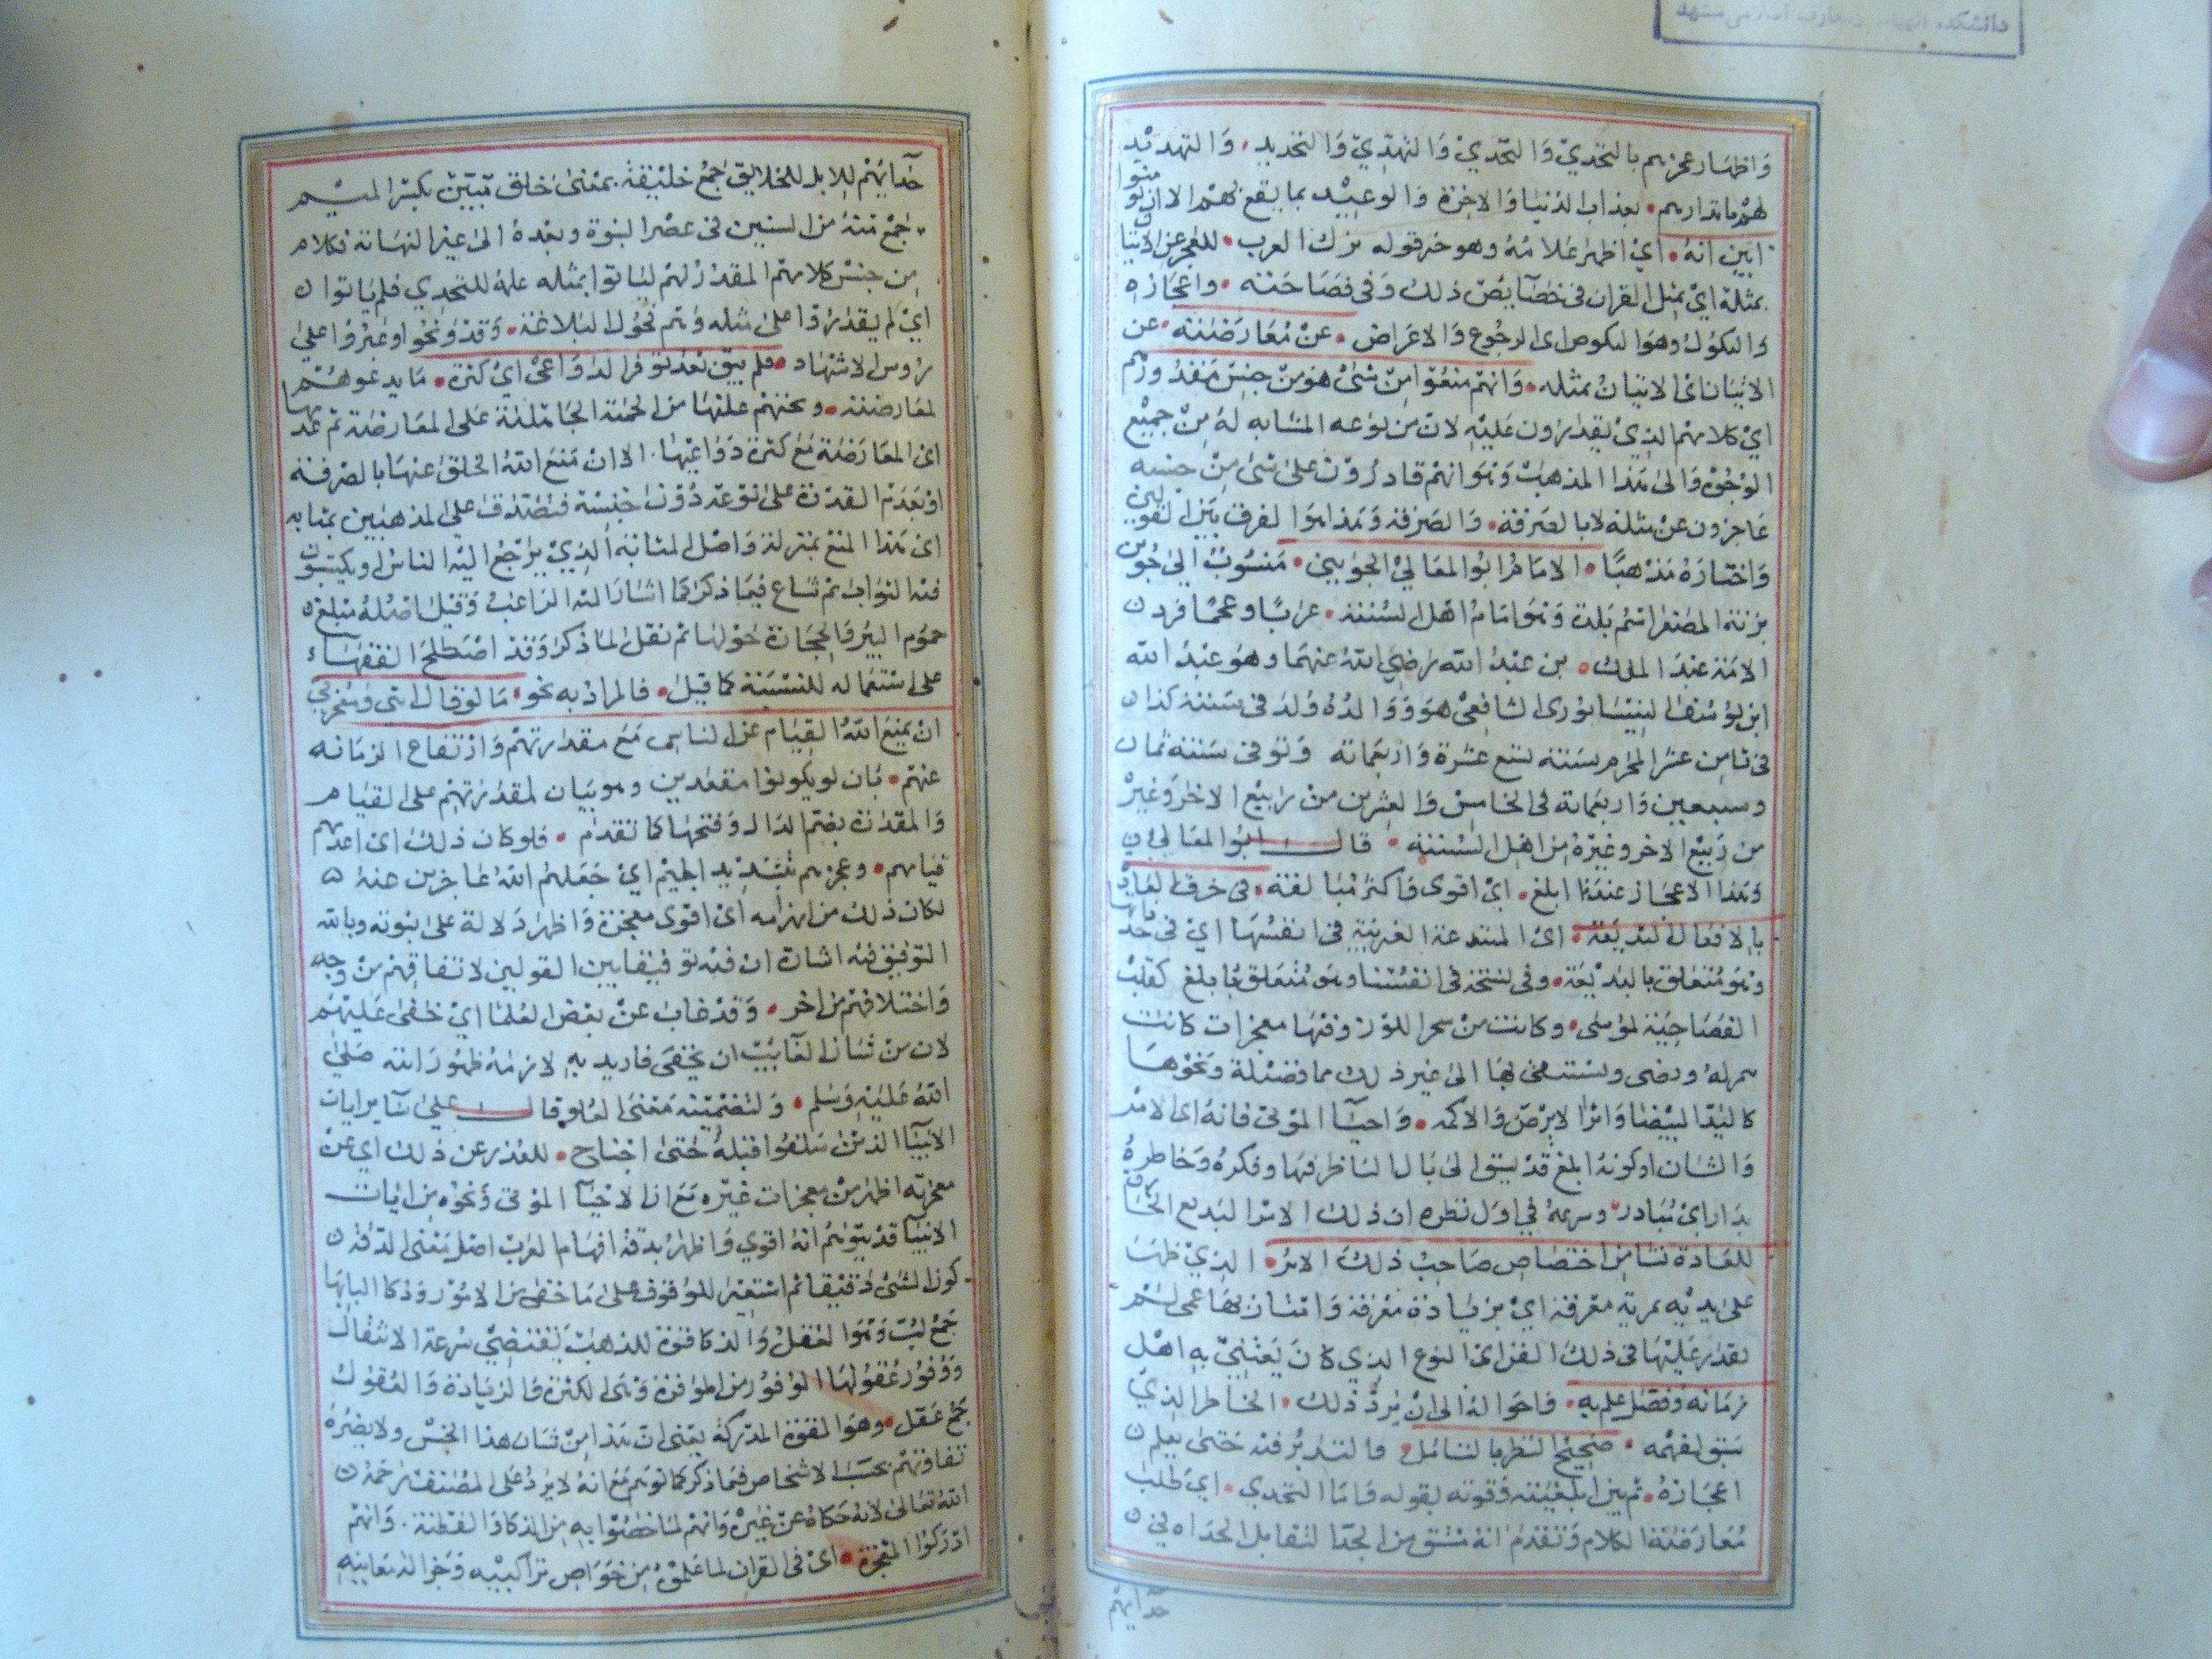 واظهار عجزهم بالتحدي والتحدي والتهدي والتحديد والتهديد
لهم ما تدارهم بعذاب الدنيا والاخرة والوعيد بما يقع لهم الا ان لو
ابين انه اي اظهر علامة وهو خبر قوله ترك العرب للعجز عن الاتيا
بمثله اي بمثل القران في خصايص ذلك وفي فصاحته واعجازه
والنكول وهو النكوص اى الرجوع والاعراض عن معارضته عن
الاتيان اى الاتيان بمثله وانهم منعوا من شئ هو من جنس مقدورهم
اي كلامهم الذي يقدرون عليه لان من نوعه المشابه له من جميع
الوجوه والى هذا المذهب وهو انهم قادرون على شئ من جنسه
عاجزون عن مثله لا بالصرفة والصرفة وهذا هو الفرق بين القولين
واختاره مذهبا الامام ابو المعالي الجويني منسوب الى جوين
بزنة المصغر اسم بلدة وهو امام اهل السنة عربا وعجما فرد
الامة عبد الملك بن عبد الله رضي الله عنهما وهو عبد الله
ابن يوسف النيسابورى الشافعى هو ووالده ولد في سنة كذا
فى ثامن عشر المحرم سنة تسع عشرة واربعمائة وتوفى سنة ثمان
وسبعين واربعمائة فى الخامس والعشرين من ربيع الاخر وغير
من ربيع الاخر وغيره من اهل السنة قال ابو المعالي
وهذا الاعجاز عندنا ابلغ اي اقوى واكثر مبالغة فى خرق العادة
بالافعال البديعة اى المبتدعة الغريبة فى انفسها اي في حد ذاتها
وهو متعلق بالبديعة وفى نسخة فى انفسنا وهو متعلق بابلغ كقلب
العصا حية لموسى وكانت من سحر اللوز وفيها معجزات كانت
كاليد البيضا وابرا الابرص والاكمه واحيا الموتى فانه اى الامر
والشان او كونه ابلغ قد يسبق الى بال الناظر فيها وفكره وخاطره
بدارا اى مبادر وسرعة في اول نظره ان ذلك الامر البديع الخارق
للعادة نشا من اختصاص صاحب ذلك الامر الذي ظهر
على يديه بمزية معرفة اي بزيادة معرفة وامتياز بها عمن لم
يقدر عليها فى ذلك الفن اى النوع الذي كان يعتني به اهل
زمانه وفضل علم به واحواله الى ان يرد ذلك الخاطر الذي
سبق لفهمه صحيح النظر بالتامل والتدبر فيه حتى يعلم
اعجازه ثم بين ابلغيته وقوته بقوله واما التحدي اي طلب
معارضة الكلام وتقدم انه مشتق من الحدا لتقابل الحداه في
حدايهم
حدايهم للابل للخلايق جمع خليقة بمعنى خلق مبين بكسر الميم
جمع مئة من السنين فى عصر النبوة وبعده الى غير النهاية بكلام
من جنس كلامهم المقدر لهم لياتوا بمثله علة للتحدي فلم ياتوا
اي لم يقدروا على مثله وهم فحول البلاغة وقد ونحوا وعبروا على
رؤس الاشهاد فلم يبق بعد توفر الدواعى اي كثرة ما يدعوهم
لمعارضته ومحنتهم عليها من الحمية الحاملة على المعارضة ثم عدمها
اى المعارضة مع كثرة دواعيها الا ان منع الله الخلق عنها بالصرفة
او بعدم القدرة على نوعه دون جنسه فتصدق على المذهبين بمثابة
اى هذا المنع بمنزلة واصل المثابة الذي يرجع اليه الناس ويكتبون
فيه الثواب ثم شاع فيما ذكر كما اشار اليه الراغب وقيل اصله مبلغ
جموم البير والحجارة حولها ثم نقل لما ذكر وقد اصطلح الفقهاء
على استعماله للنسبة كما قيل فالمراد به نحو ما لو قال نبي ومعجزتي
ان يمنع الله القيام عن الناس مع مقدرتهم وارتفاع الزمانة
عنهم بان لو يكونوا مقعدين وهو بيان لمقدرتهم على القيام
والمقدرة بضم الدال وفتحها كما تقدم فلو كان ذلك اى اعدم
قيامهم وعجزهم بتشديد الجيم اي جعلهم الله عاجزين عنه
لكان ذلك من ابهرآية اى اقوى معجزة واظهر دلالة على نبوته وبالله
التوفيق فيه اشارة ان فيه توفيقا بين القولين لاتفاقهم من وجه
واختلافهم من اخر وقد غاب عن بعض العلما اي خفى عليهم
لان من شان الغايب ان يخفى فاريد به لازمه ظهور ايته صلى
الله عليه وسلم ولتضمينه معنى العلو قال على ساير ايات
الانبيا الذين سلفوا قبله حتى احتاج للعذر عن ذلك اي عن
معجزته اظهر من معجزات غيره مع ان الاحيا الموتى ونحوه من ايات
الانبيا قد يتوهم انه اقوي واظهر بدقة افهام العرب اصل معنى الدقة
كون الشئ دقيقا ثم استعير للوقوف على ما خفى من الامور وذكا البابها
جمع لب وهو العقل والذكا قوة للذهب يقتضي سرعة الانتقال
ووفور عقولها الوفور من الوافرة وهى الكثرة والزيادة والعقول
جمع عقل وهو القوة المدركة يعنى ان هذا من شان هذا الجنس ولا يضره
تفاوتهم بحسب الاشخاص فيما ذكر كما توهم مع انه لا يرد على المصنف رحمه
الله تعالى لانه حكاه عن غيره وانهم لما خصوا به من الذكا والفطنة وانهم
ادركوا المعجزة اى فى القران لما علموه من خواص تراكيبه وجزالة معانيه